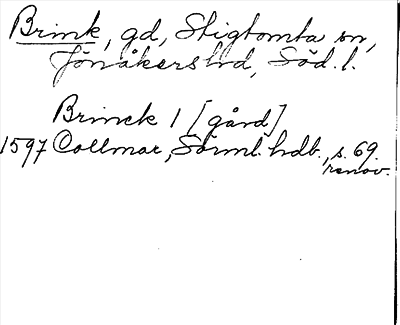 Brink, gd, Stigtomta sn,
Jönåkers hd, Söd. l.
Brinck 1 [gård]
1597 Collmar, Sörml. hdb., s. 69.
renov.